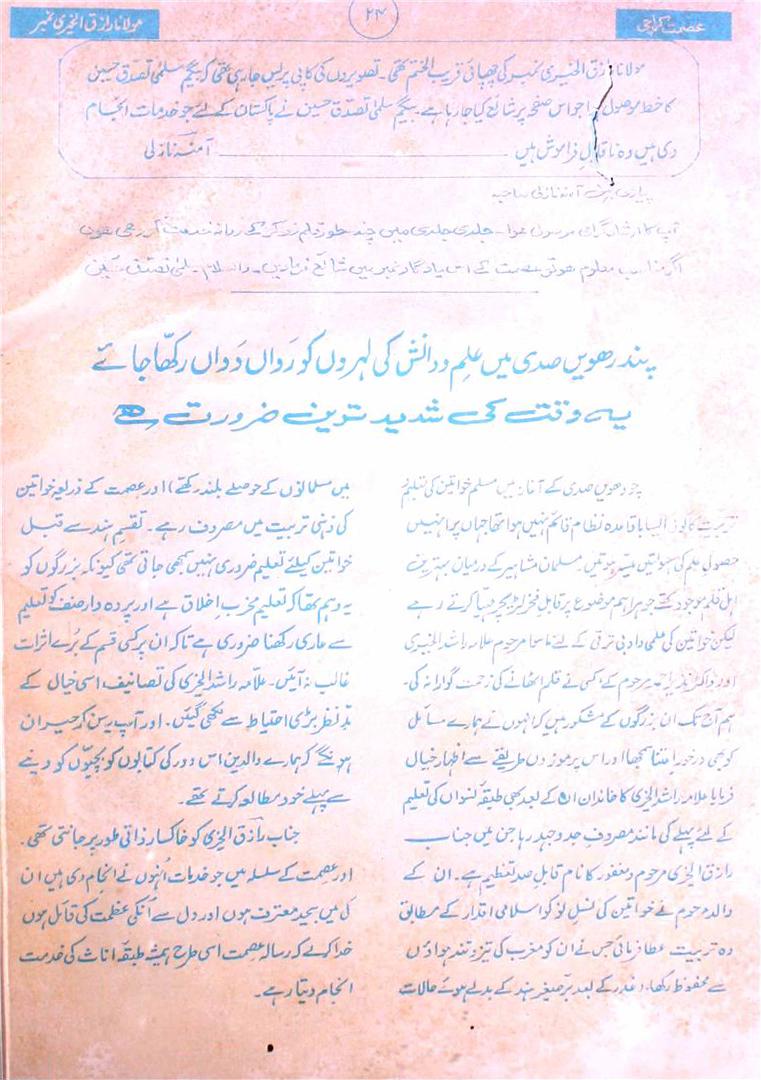 عصمت کراچی
۲۴
مولانا رازق الخیری نمبر
مولانا رازق الخیری نمبر کی چھپائی قریب الختم تھی۔ تصویروں کی کاپی پریس جا رہی تھی کہ بیگم سلمیٰ تصدق حسین
کا خط موصول ہوا جو اس صفحہ پر شائع کیا جا رہا ہے۔ بیگم سلمیٰ تصدق حسین نے پاکستان کے لئے جو خدمات انجام
دی ہیں وہ ناقابلِ فراموش ہیں ــــــــــ آمنہ نازلی
پیاری بہن آمنہ نازلی صاحبہ
آپ کا ارشاد گرامی موصول ہوا۔ جلدی جلدی میں چند سطور قلم زد کر کے روانہ خدمت کر رہی ہوں
اگر مناسب معلوم ہو تو عصمت کے اس یادگار نمبر میں شائع فرمادیں۔ والسلام۔ سلمیٰ تصدق حسین
پندرھویں صدی میں علم و دانش کی لہروں کو رَواں دَواں رکھا جائے
یہ وقت کی شدید ترین ضرورت ہے
چودھویں صدی کے آغاز میں مسلم خواتین کی تعلیم و
تربیت کا کوئی ایسا باقاعدہ نظام قائم نہیں ہوا تھا جہاں پر انہیں
حصولِ علم کی سہولتیں میسر ہوتیں۔ مسلمان مشاہیر کے درمیان بہترین
اہل قلم موجود تھے جو ہر اہم موضوع پر قابلِ فخر لٹریچر مہیا کرتے رہے
لیکن خواتین کی علمی و ادبی ترقی کے لئے ماسوا مرحوم علامہ راشد الخیری
اور ڈاکٹر نذیر احمد مرحوم کے کسی نے قلم اٹھانے کی زحمت گوارا نہ کی۔
ہم آج تک ان بزرگوں کے مشکور ہیں کہ انہوں نے ہمارے مسائل
کو بھی درخور اعتنا سمجھا اور اس پر موزوں طریقے سے اظہار خیال
فرمایا علامہ راشد الخیری کا خاندان ان کے بعد بھی طبقہ نسواں کی تعلیم
کے لئے پہلے کی مانند مصروفِ جدوجہد رہا جن میں جناب
رازق الخیری مرحوم و مغفور کا نام قابلِ صد تعظیم ہے۔ ان کے
والد مرحوم نے خواتین کی نسلِ نو کو اسلامی اقدار کے مطابق
وہ تربیت عطا فرمائی جس نے ان کو مغرب کی تیز و تند ہواؤں
سے محفوظ رکھا۔ غدر کے بعد برّصغیر ہند کے بدلے ہوئے حالات
میں مسلمانوں کے حوصلے بلند رکھے) اور عصمت کے ذریعہ خواتین
کی ذہنی تربیت میں مصروف رہے۔ تقسیمِ ہند سے قبل
خواتین کیلئے تعلیم ضروری نہیں سمجھی جاتی تھی کیونکہ بزرگوں کو
یہ وہم تھا کہ تعلیم مخرب اخلاق ہے اور پردہ دار صنف کو تعلیم
سے عاری رکھنا ضروری ہے تاکہ ان پر کسی قسم کے بُرے اثرات
غالب نہ آئیں۔ علامہ راشد الخیری کی تصانیف اسی خیال کے
مدِ نظر بڑی احتیاط سے لکھی گئیں۔ اور آپ یہ سن کر حیران
ہونگے کہ ہمارے والدین اس دور کی کتابوں کو بچیّوں کو دینے
سے پہلے خود مطالعہ کرتے تھے۔
جناب رازق الخیری کو خاکسار ذاتی طور پر جانتی تھی۔
اور عصمت کے سلسلہ میں جو خدمات اُنہوں نے انجام دی ہیں ان
کی میں بیحد معترف ہوں اور دل سے اُنکی عظمت کی قائل ہوں
خدا کرے کہ رسالہ عصمت اسی طرح ہمیشہ طبقۂ اناث کی خدمت
انجام دیتا رہے۔